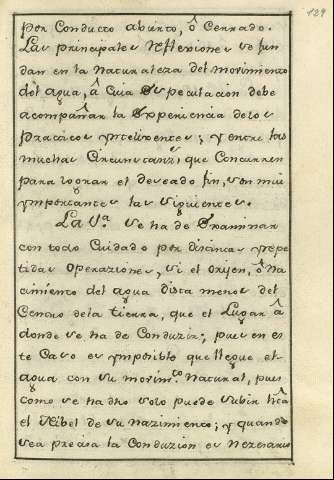 129
por Conducto abierto, ô Cerrado.
Las principales reflexiones se fun
dan en la Naturaleza del movimiento
del agua, â Cuia Especulacion debe
acompañar la Experiencia delos
Practicos ynteligentes; y entre las
muchas Circunstanzs, que Concurren
para lograr el deseado fin, son mui
ymportantes las siguientes.
La 1ª. se ha de Examinar
con todo Cuidado por distintas y repe
tidas Operaziones, si el origen, ô Na
cimiento del agua dista menos del
Centro dela tierra, que el Lugar â
donde se ha de Conduzir; pues en es
te Caso es ymposible que llegue el
agua con su movimto. Natural, pues
como se ha dho solo puede subir hta
el Nibel de su nazimiento; y quando
sea precisa la Conduzion es Nezesario